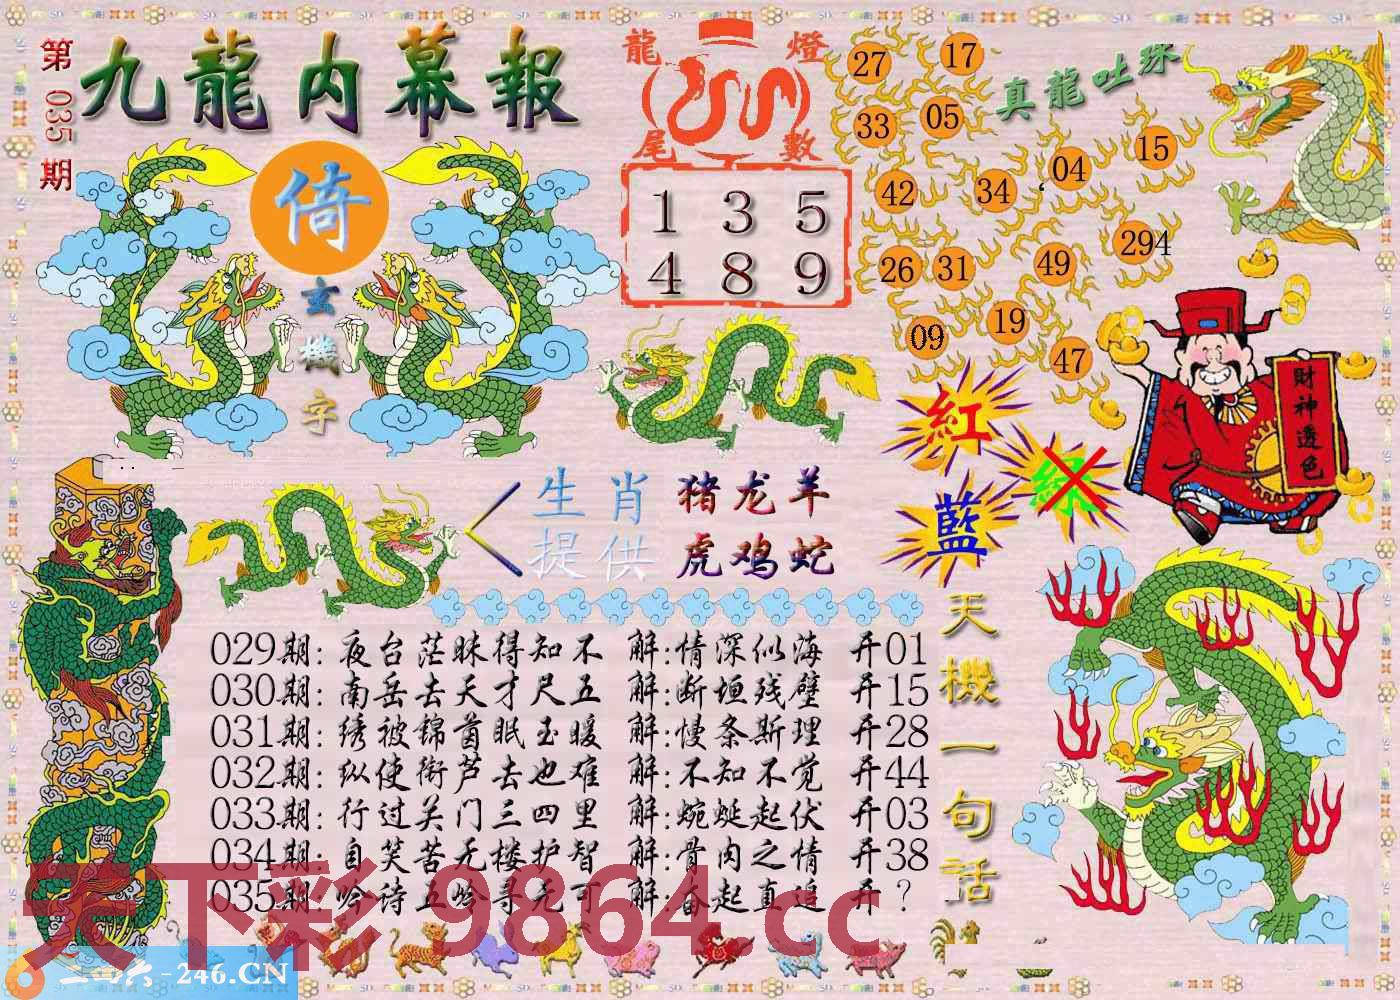 第035期
九龍内幕報
倚
玄機字
龍燈
尾數
1 3 5
4 8 9
真龍吐珠
27 17
33 05
42 34 04 15
26 31 49 294
09 19 47
紅
綠
藍
財神透色
生肖 猪龙羊
提供 虎鸡蛇
天機一句話
029期: 夜台茫昧得知不 解:情深似海 开01
030期: 南岳去天才尺五 解:断垣残壁 开15
031期: 绣被锦茵眠玉暖 解:慢条斯理 开28
032期: 纵使衔芦去也难 解:不知不觉 开44
033期: 行过关门三四里 解:蜿蜒起伏 开03
034期: 自笑苦无楼护智 解:骨肉之情 开38
035期: 吟诗五岭寻无可 解:奋起直追 开?
天下彩 9864.cc
二四六-246.CN